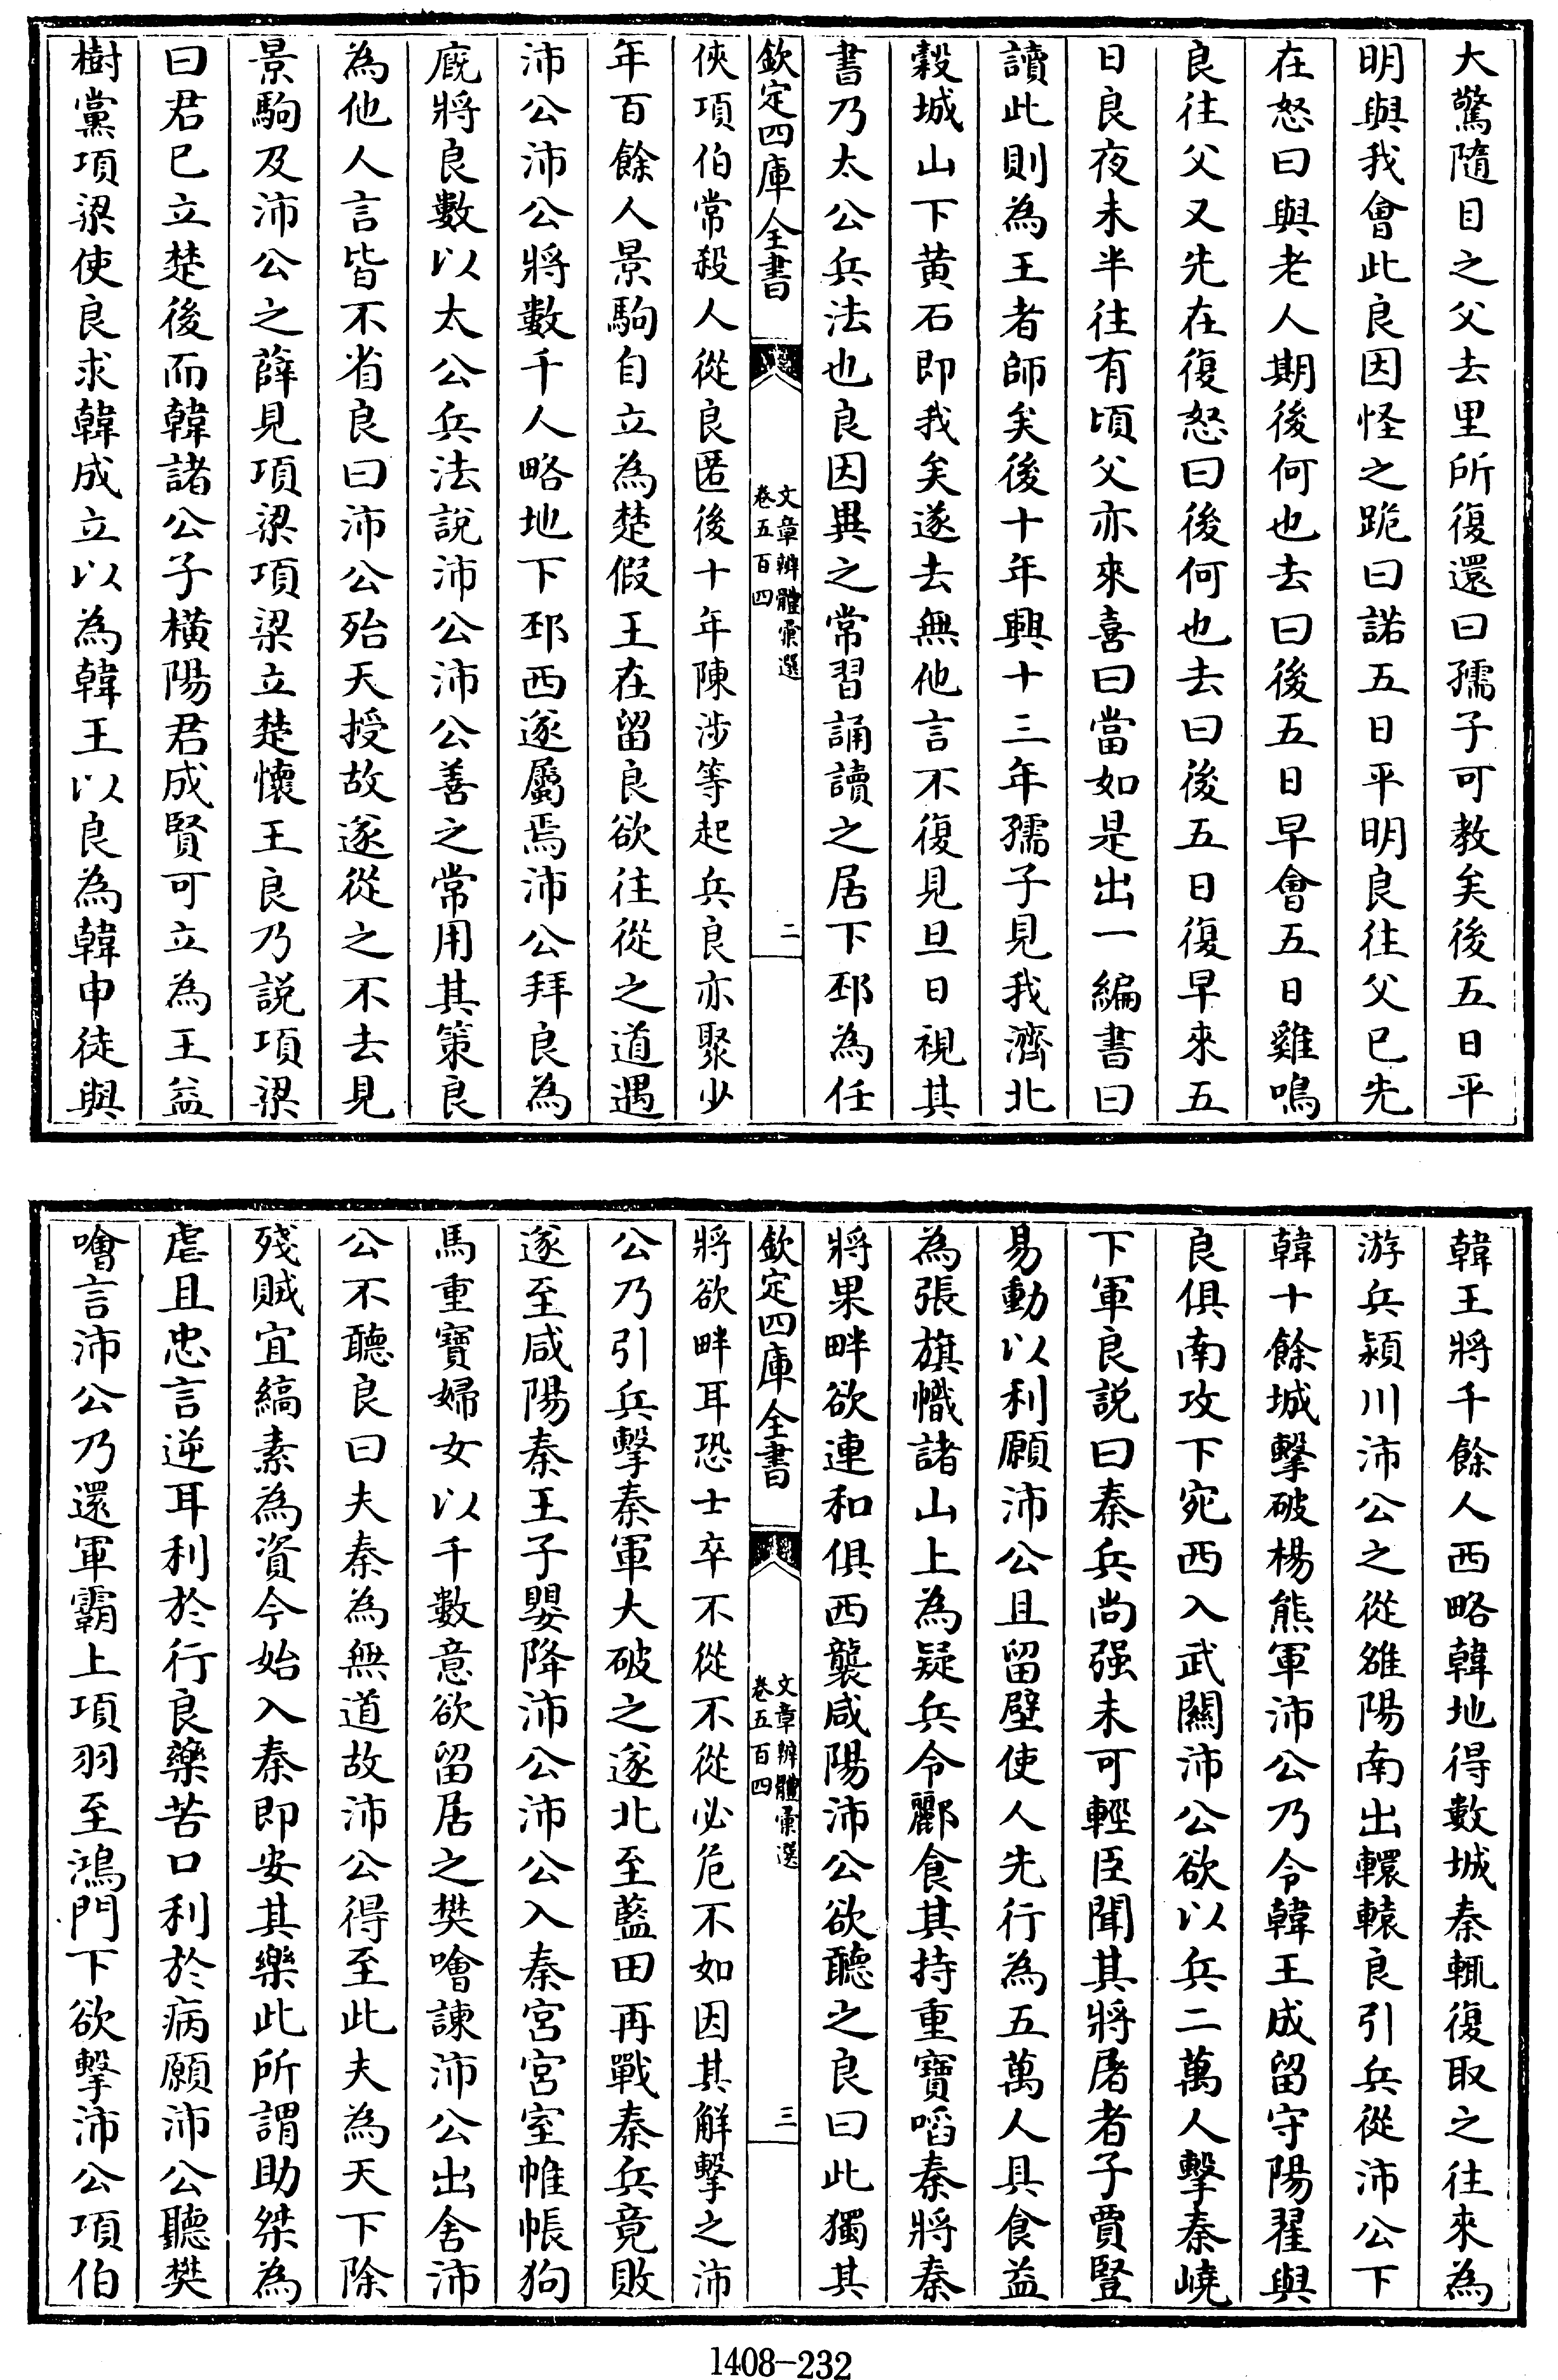 大驚隨目之父去里所復還曰孺子可教矣後五日平
明與我會此良因怪之跪曰諾五日平明良往父已先
在怒曰與老人期後何也去曰後五日早會五日雞鳴
良往父又先在復怒曰後何也去曰後五日復早來五
日良夜未半往有頃父亦來喜曰當如是出一編書曰
讀此則為王者師矣後十年興十三年孺子見我濟北
榖城山下黄石即我矣遂去無他言不復見旦日視其
書乃太公兵法也良因異之常習誦讀之居下邳為任
欽定四庫全書
文章辨體彙選
卷五百四
二
俠項伯常殺人從良匿後十年陳涉等起兵良亦聚少
年百餘人景駒自立為楚假王在留良欲往從之道遇
沛公沛公將數千人略地下邳西遂屬焉沛公拜良為
廐將良數以太公兵法說沛公沛公善之常用其策良
為他人言皆不省良曰沛公殆天授故遂從之不去見
景駒及沛公之薛見項梁項梁立楚懷王良乃説項梁
曰君已立楚後而韓諸公子橫陽君成賢可立為王益
樹黨項梁使良求韓成立以為韓王以良為韓申徒與
韓王將千餘人西略韓地得數城秦輒復取之往來為
游兵潁川沛公之從雒陽南出轘轅良引兵從沛公下
韓十餘城擊破楊熊軍沛公乃令韓王成留守陽翟與
良俱南攻下宛西入武關沛公欲以兵二萬人擊秦嶢
下軍良説曰秦兵尚强未可輕臣聞其將屠者子賈豎
易動以利願沛公且留壁使人先行為五萬人具食益
為張旗幟諸山上為疑兵令酈食其持重寶啗秦將秦
將果畔欲連和俱西襲咸陽沛公欲聽之良曰此獨其
欽定四庫全書
文章辨體彙選
卷五百四
三
將欲畔耳恐士卒不從不從必危不如因其解擊之沛
公乃引兵擊秦軍大破之遂北至藍田再戰秦兵竟敗
遂至咸陽秦王子嬰降沛公沛公入秦宮宮室帷帳狗
馬重寶婦女以千數意欲留居之樊噲諫沛公出舍沛
公不聽良曰夫秦為無道故沛公得至此夫為天下除
殘賊宜縞素為資今始入秦即安其樂此所謂助桀為
虐且忠言逆耳利於行良藥苦口利於病願沛公聽樊
噲言沛公乃還軍霸上項羽至鴻門下欲擊沛公項伯
1408-232